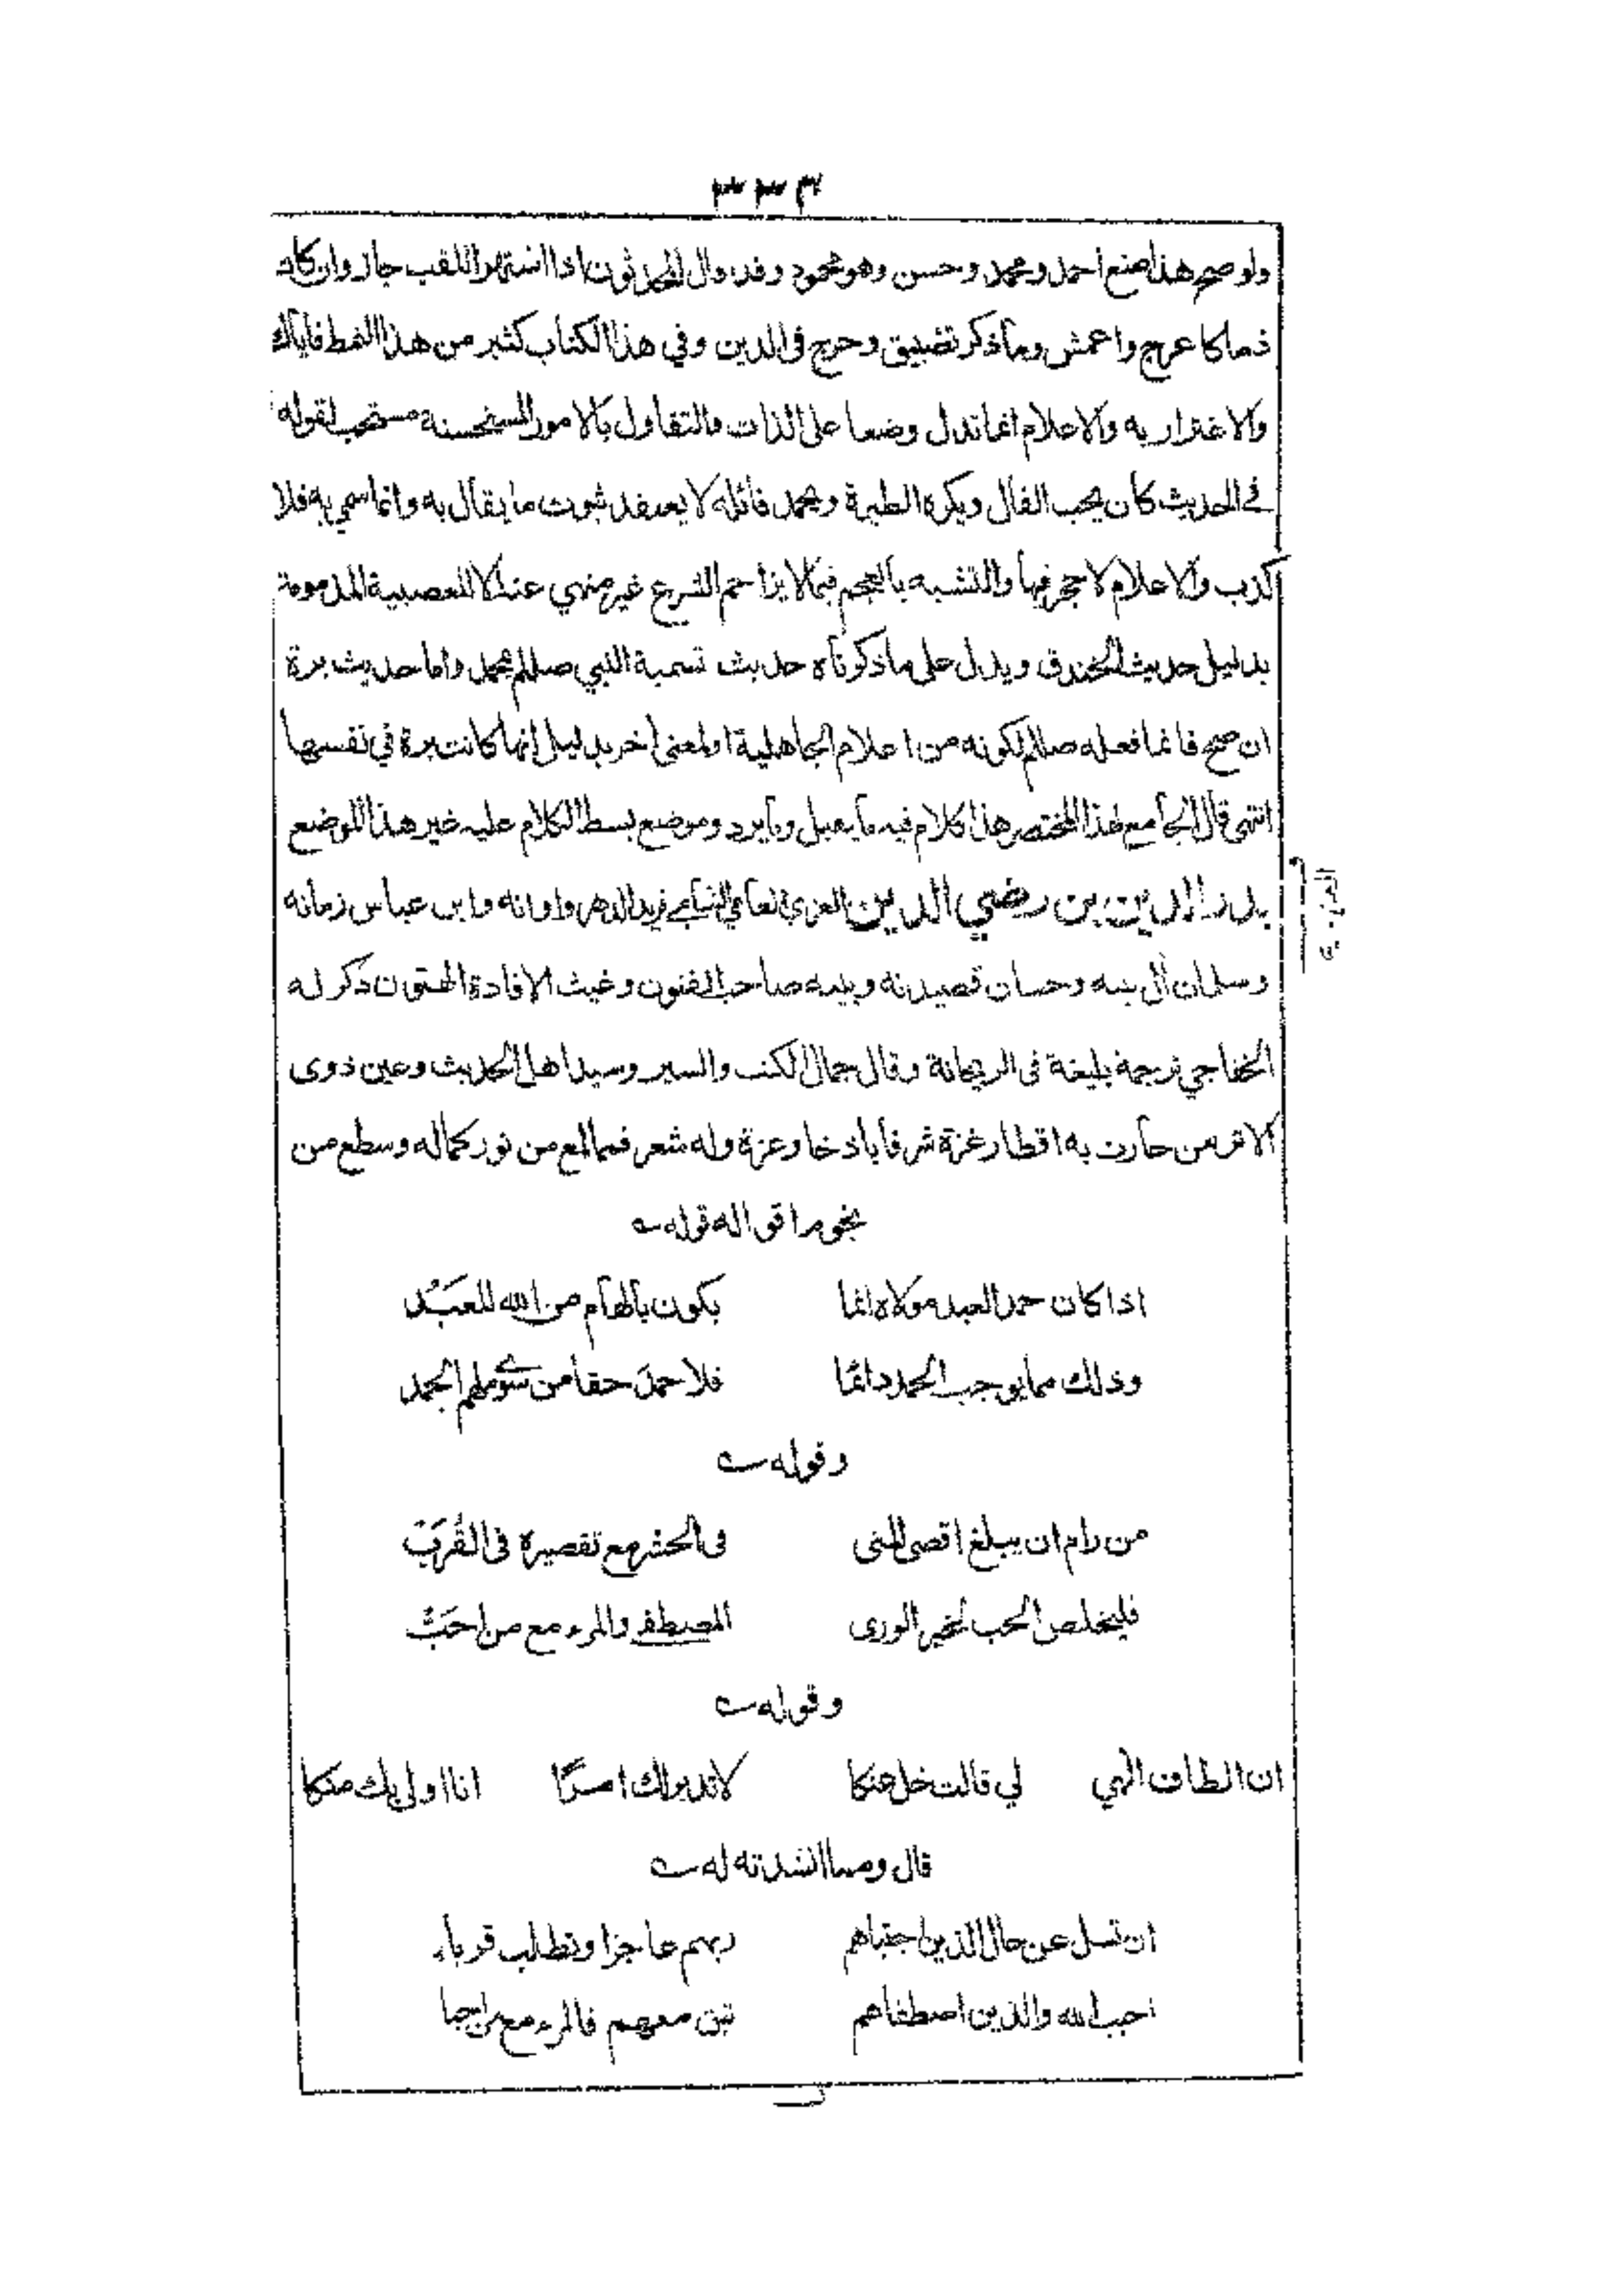 ٣٣٣
ولو صح هذا منع احمد ومحمد وحسن وهو محمود وقد قال المحدثون اذا اشتهر اللقب جاز وان كان
ذما كاعرج واعمش وما ذكر تضييق وحرج فى الدين وفي هذا الكتاب كثير من هذا النمط فاياك
والاغترار به والاعلام انما تدل وضعا على الذات والتفاول بالامور المستحسنة مستحب لقوله
في الحديث كان يحب الفال ويكره الطيرة وبحمد قائله لا يعد ثبوت ما يقال به وانما سمي به فلا
كذب والاعلام لا حجر فيها والتشبه بالعجم فيما لا يزاحم الشرع غير منهي عنه الا للعصبية المذمومة
بدليل حديث الخندق ويدل على ما ذكرناه حديث تسمية النبي صللم محمد واما حديث برة
ان صح فانما فعله صللم لكونه من اعلام الجاهلية او لمعنى اخر بدليل انها كانت برة في نفسها
انتهى قال الجامع لهذا المختصر هذا كلام فيه ما يقبل وما يرد وموضع بسط الكلام عليه غير هذا الموضع
بدر الدين بن رضي الدين الغزي العامري الشافعي فريد الدهر واوانه وابن عباس زمانه
وسلمان آل بيته وحسان قصيدته وبيته صاحب الفنون وغيث الافادة الهتون ذكر له
الخفاجي ترجمة بليغة فى الريحانة وقال جمال الكتب والسير وسيد اهل الحديث وعين ذوى
الاثر من حازت به اقطار غزة شرفا باذخا وعزة وله شعر فمما لمع من نور كماله وسطع من
نجوم اقواله قوله
اذا كان حمد العبد مولاه انما يكون بالهام من الله للعبد
وذلك مما يوجب الحمد دائما فلا حمد حقا من سوى ملهم الحمد
وقوله
من رام ان يبلغ اقصى المنى فى الحشر مع تقصيره فى القُرَب
فليخلص الحب لخير الورى المصطفى والمرء مع من احَبّ
وقوله
ان الطاف الهي لي قالت خل عنكا لا تدبر لك امرًا انا اولى بك منكا
قال ومما انشدته له
ان تسل عن حال الذين اجتباهم ربهم عاجزا وتطلب قرباء
احبب الله والذين اصطفاهم تبق معهم فالمرء مع من احبا